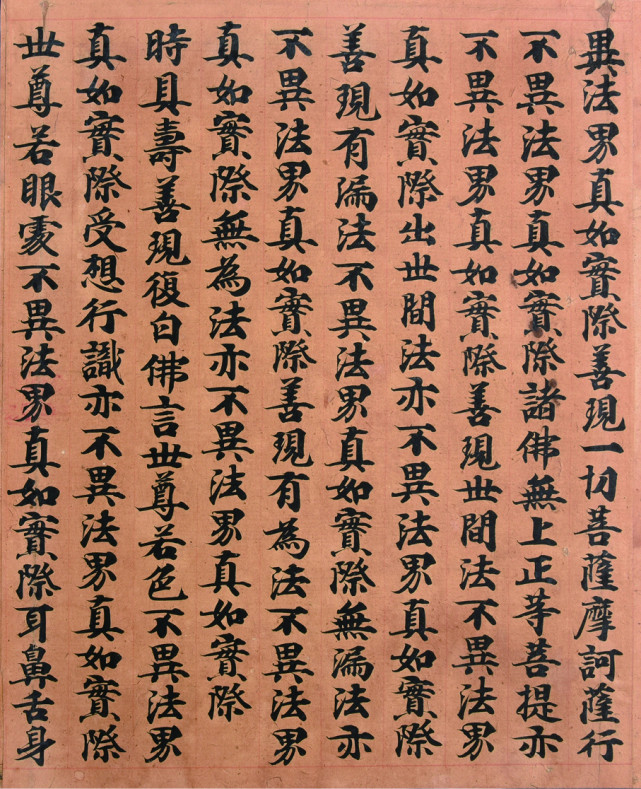 異法界真如實際善現一切菩薩摩訶薩行
不異法界真如實際諸佛無上正等菩提亦
不異法界真如實際善現世間法不異法界
真如實際出世間法亦不異法界真如實際
善現有漏法不異法界真如實際無漏法亦
不異法界真如實際善現有為法不異法界
真如實際無為法亦不異法界真如實際
時具壽善現復白佛言世尊若色不異法界
真如實際受想行識亦不異法界真如實際
世尊若眼處不異法界真如實際耳鼻舌身